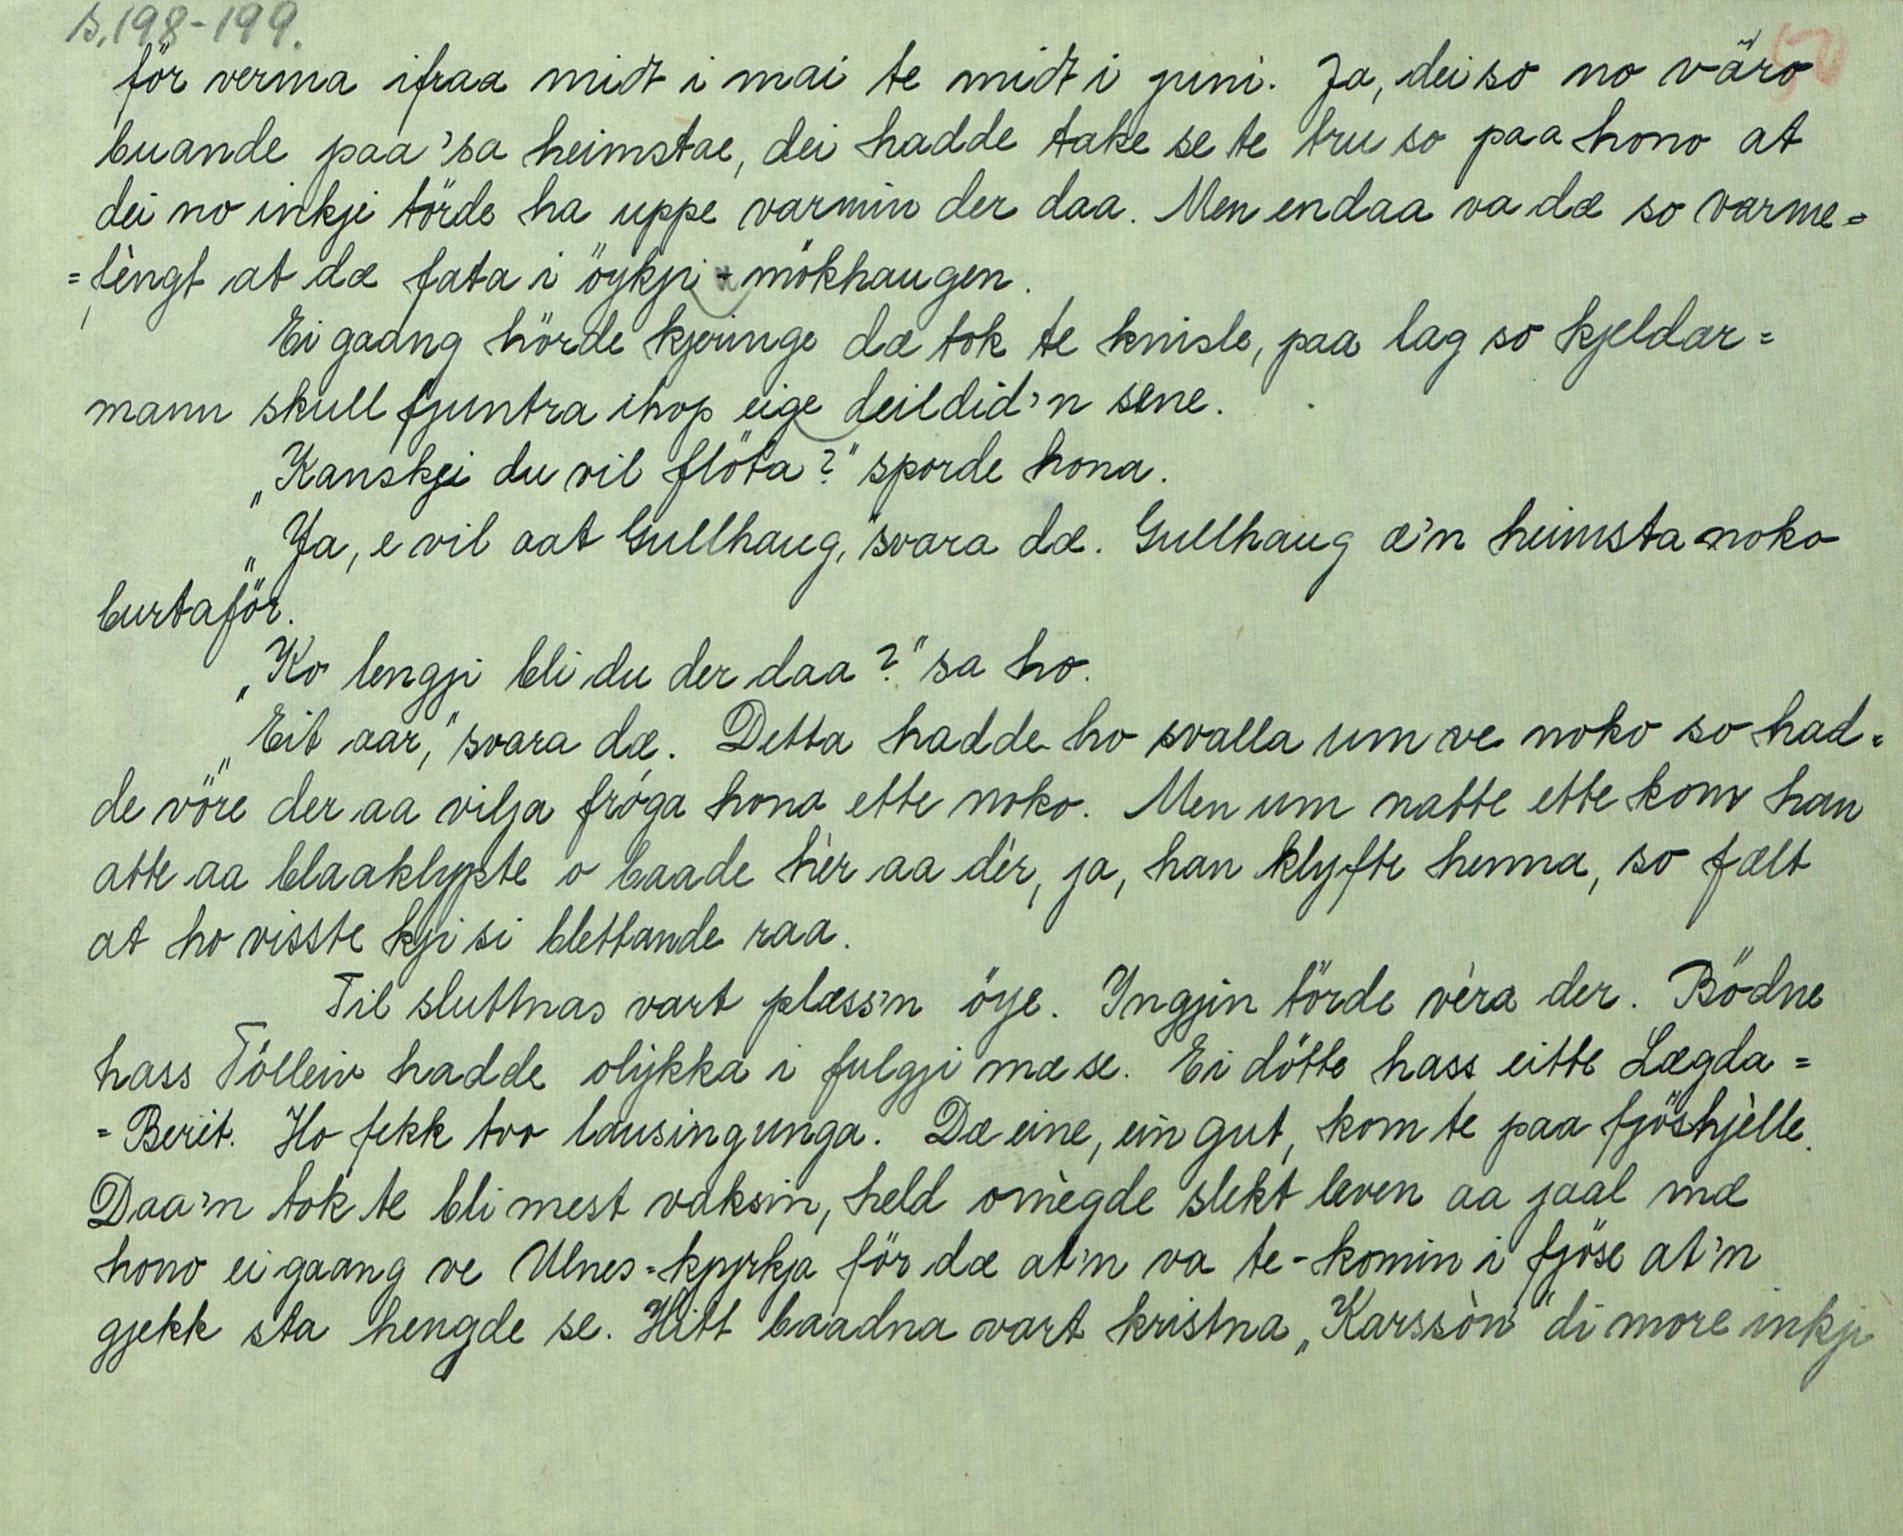 s. 198-199.
50
för verma ifraa midt i mai te midt i juni. Ja, dei so no väro
buande paa 'sa heimstae, dei hadde take se te tru so paa hono at
dei no inkje törde ha uppe varmin der daa. Men endaa va dæ so varme=
=lèngt at dæ fata i öykji-mökhaugen.
Ei gaang hörde kjeringe dæ tok te knisle, paa lag so kjeldar=
mann skull fjuntra ihop eige deildid'n sene.
„Kanskji du vil flöta?" sporde hona.
„Ja, e vil aat Gullhaug," svara dæ. Gullhaug æ'n heimsta noko
burtaför.
„Ko lengji bli du der daa?" sa ho.
„Eit aar," svara dæ. Detta hadde ho svalla um ve noko so had=
de vöre der aa vilja fróga hona ette noko. Men um natte ette kom han
atte aa blaaklypte o baade hèr aa dèr, ja, han klyfte henna, so fælt
at ho visste kji si blettande raa.
Til sluttnas vart plæss'n öye. Yngjin törde vèra der. Bödne
hass Tölleiv hadde olýkka i fulgji mæ se. Ei dötte hass eitte Lægda=
=Berit. Ho fekk tvo lausingunga. Dæ eine, ein gut, kom te paa fjöshjèlle.
Daa'n tok te bli mest vaksin, held omègde slekt leven aa jaal mæ
hono ei gaang ve Ulnes=kyrkja för dæ at'n va te-komin i fjöse at'n
gjekk sta hengde se. Hitt baadna vart kristna „Karssòn" di more inkji